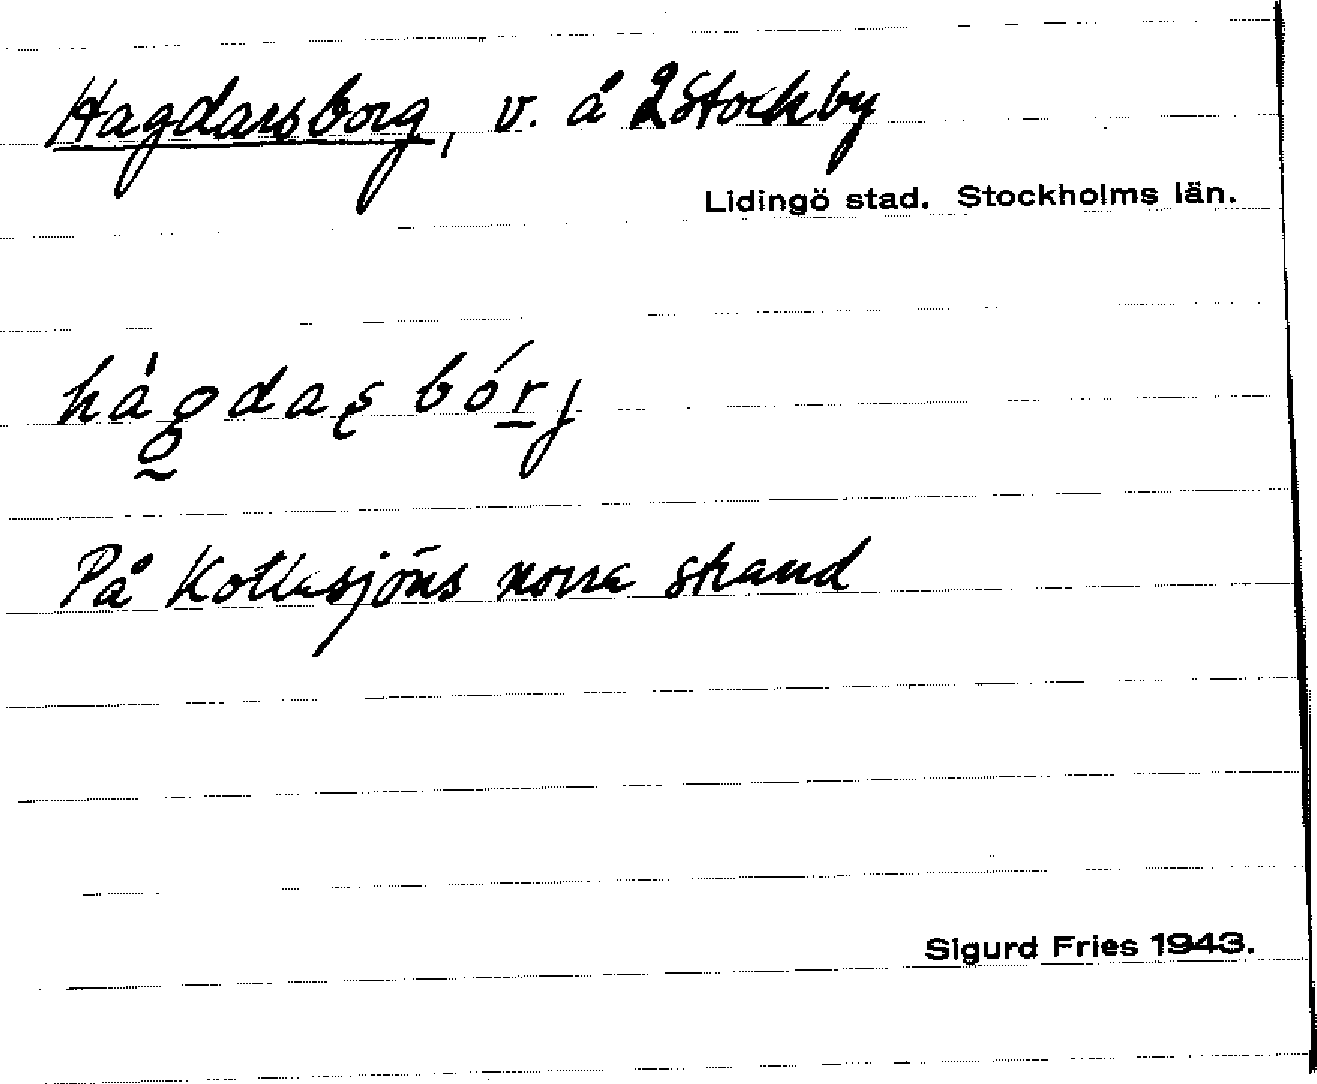 Hagdarsborg, v. å 2 Stockby
Lidingö stad. Stockholms län.
hágdaʂbórj
På Kottlasjöns norra strand
Sigurd Fries 1943.